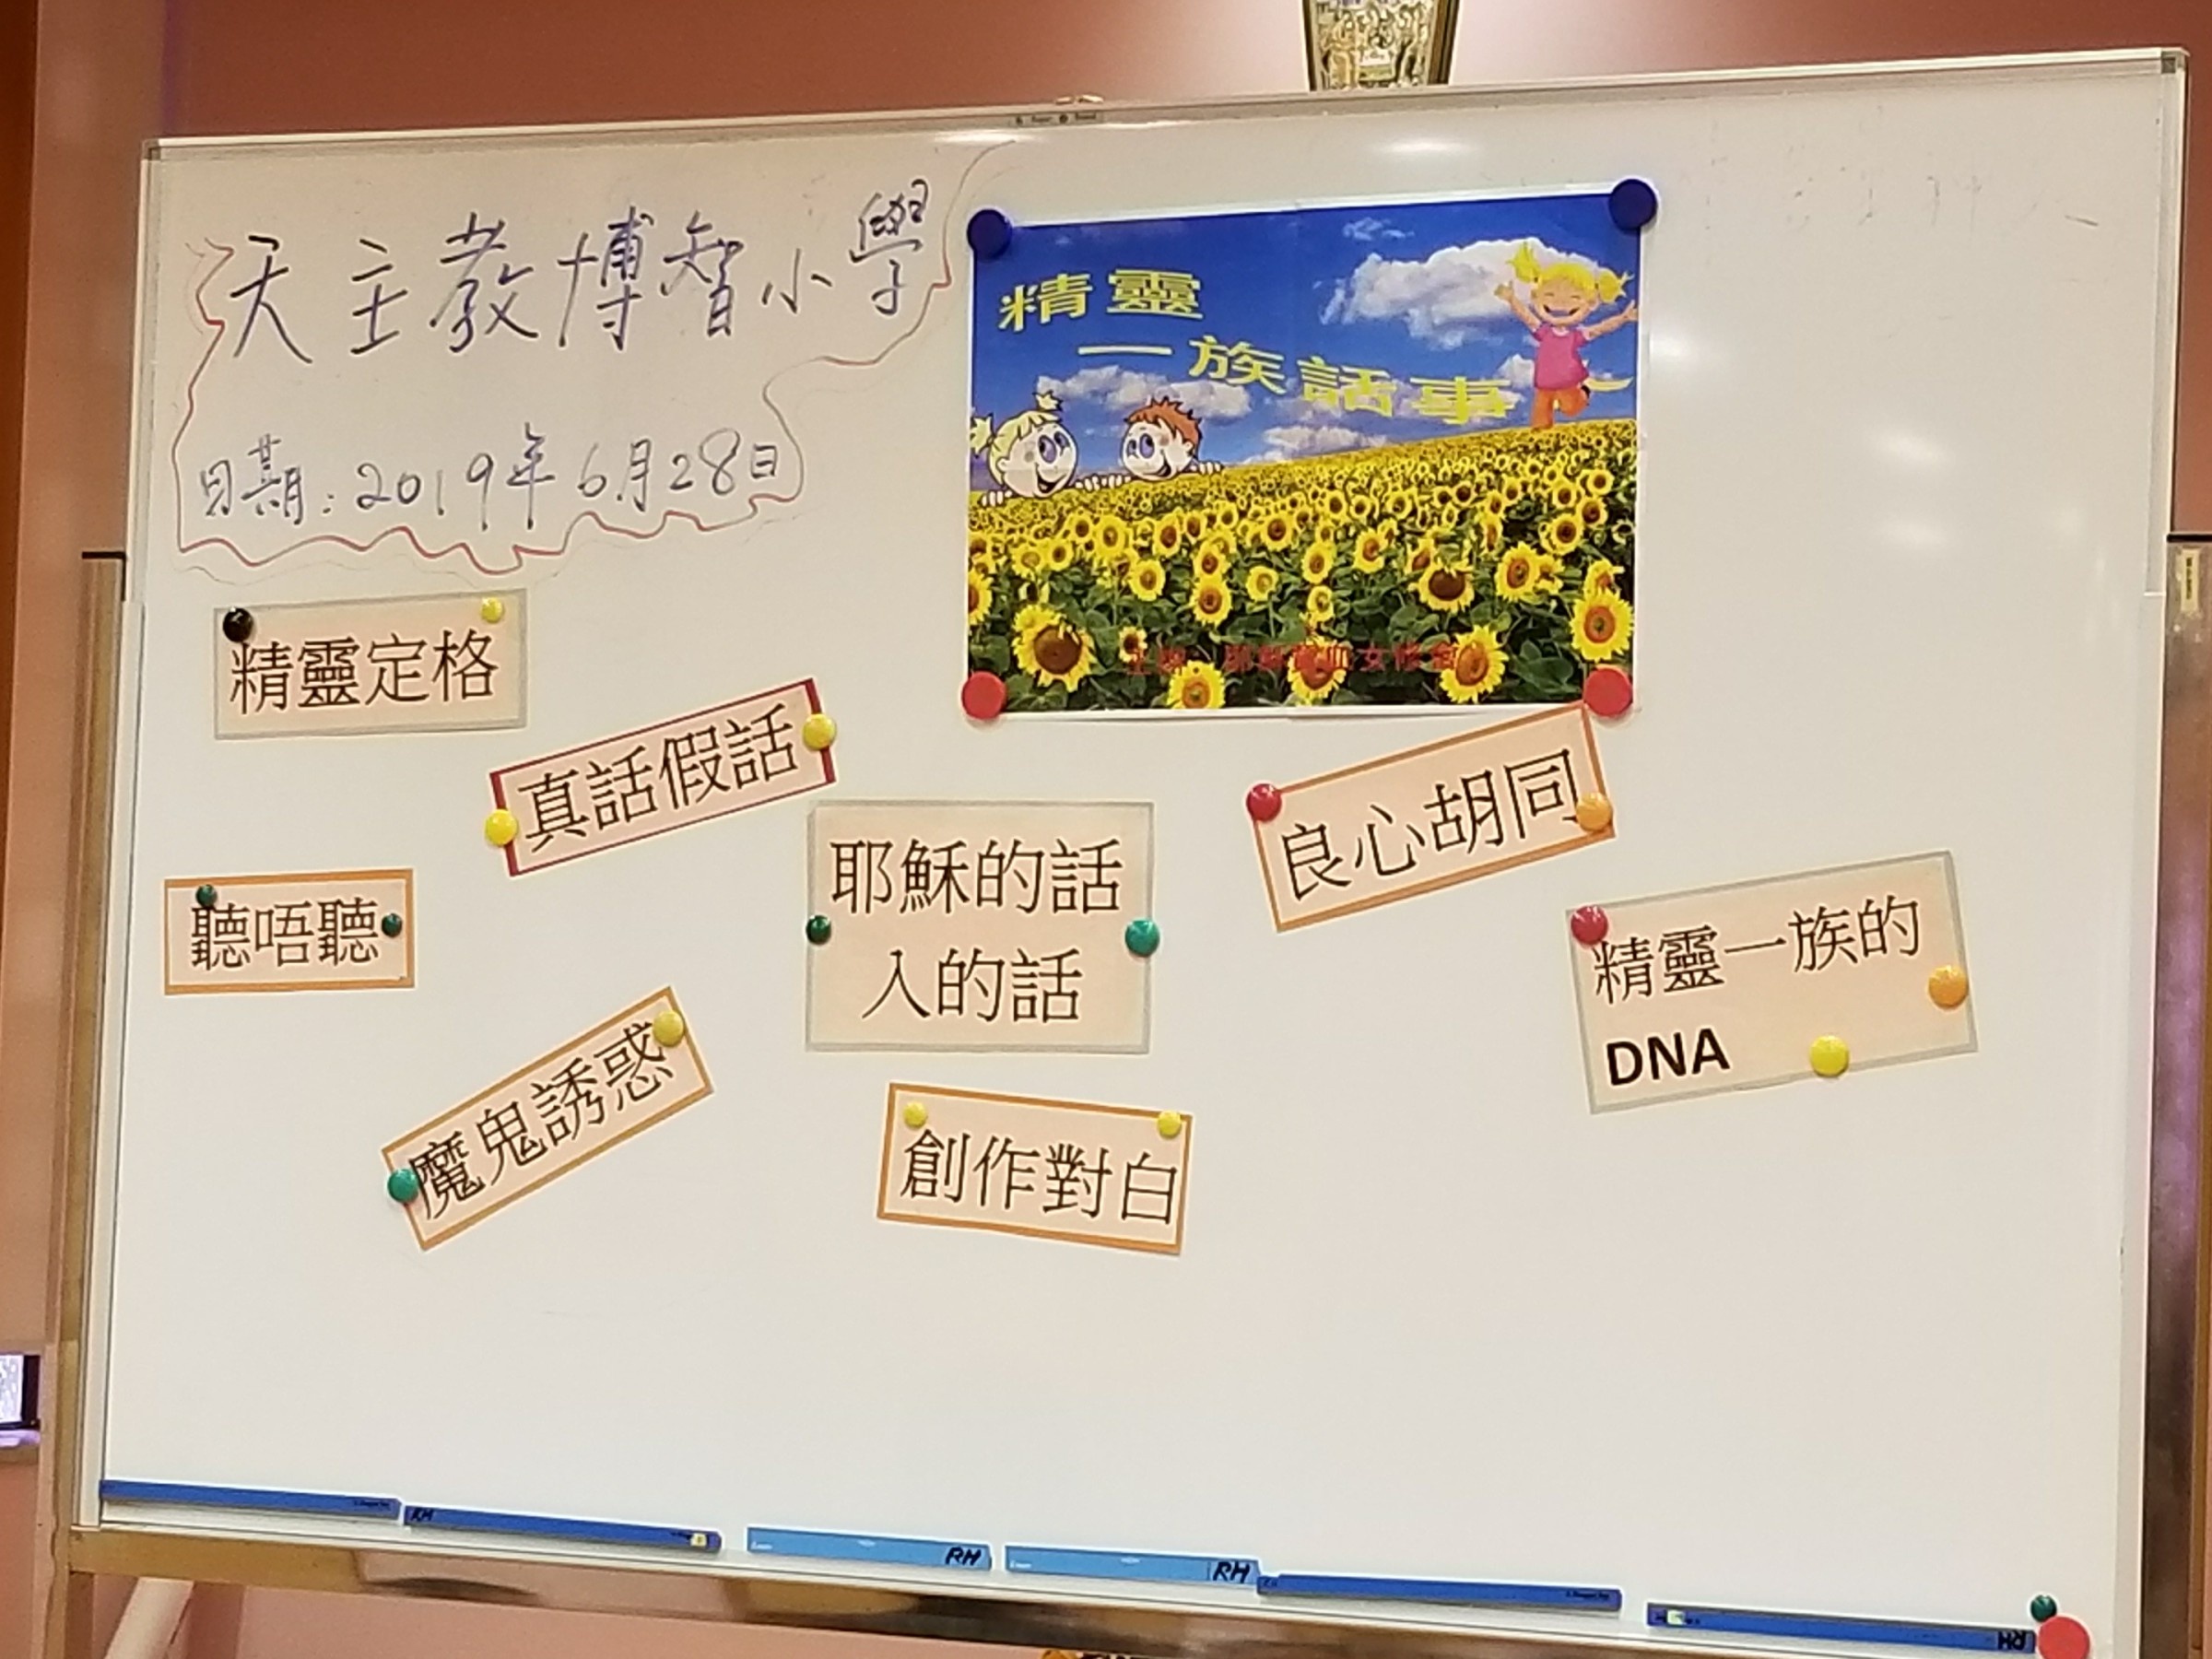 天主教博智小學
日期：2019年6月28日
精靈
一族話事
精靈定格
真話假話
良心胡同
耶穌的話
人的話
聽唔聽
精靈一族的
DNA
魔鬼誘惑
創作對白
RH
RH
RH
RH